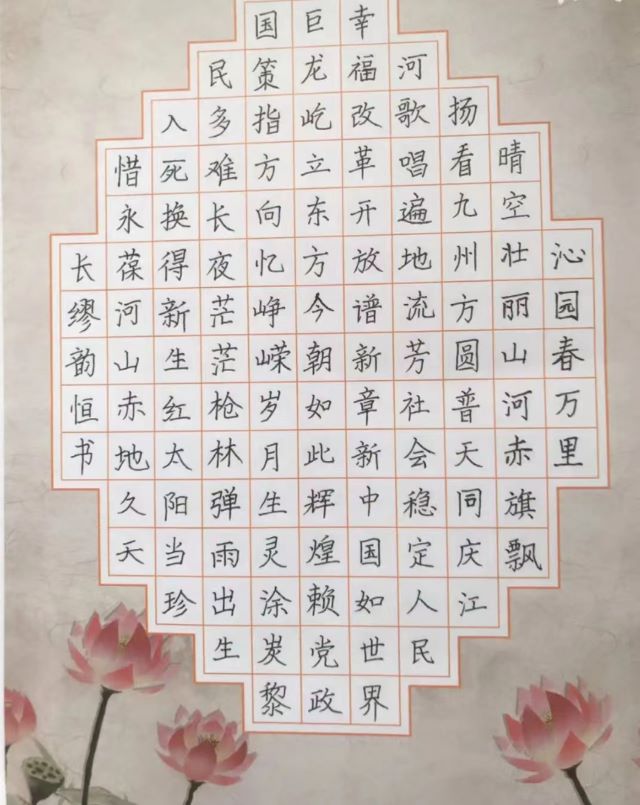 沁园春万里
晴空壮丽山河赤旗飘
扬看九州方圆普天同庆江
河歌唱遍地流芳社会稳定人民
幸福改革开放谱新章新中国如世界
巨龙屹立东方今朝如此辉煌赖党政
国策指方向忆峥嵘岁月生灵涂炭黎
民多难长夜茫茫枪林弹雨出生
入死换得新生红太阳当珍
惜永葆河山赤地久天
长缪韵恒书